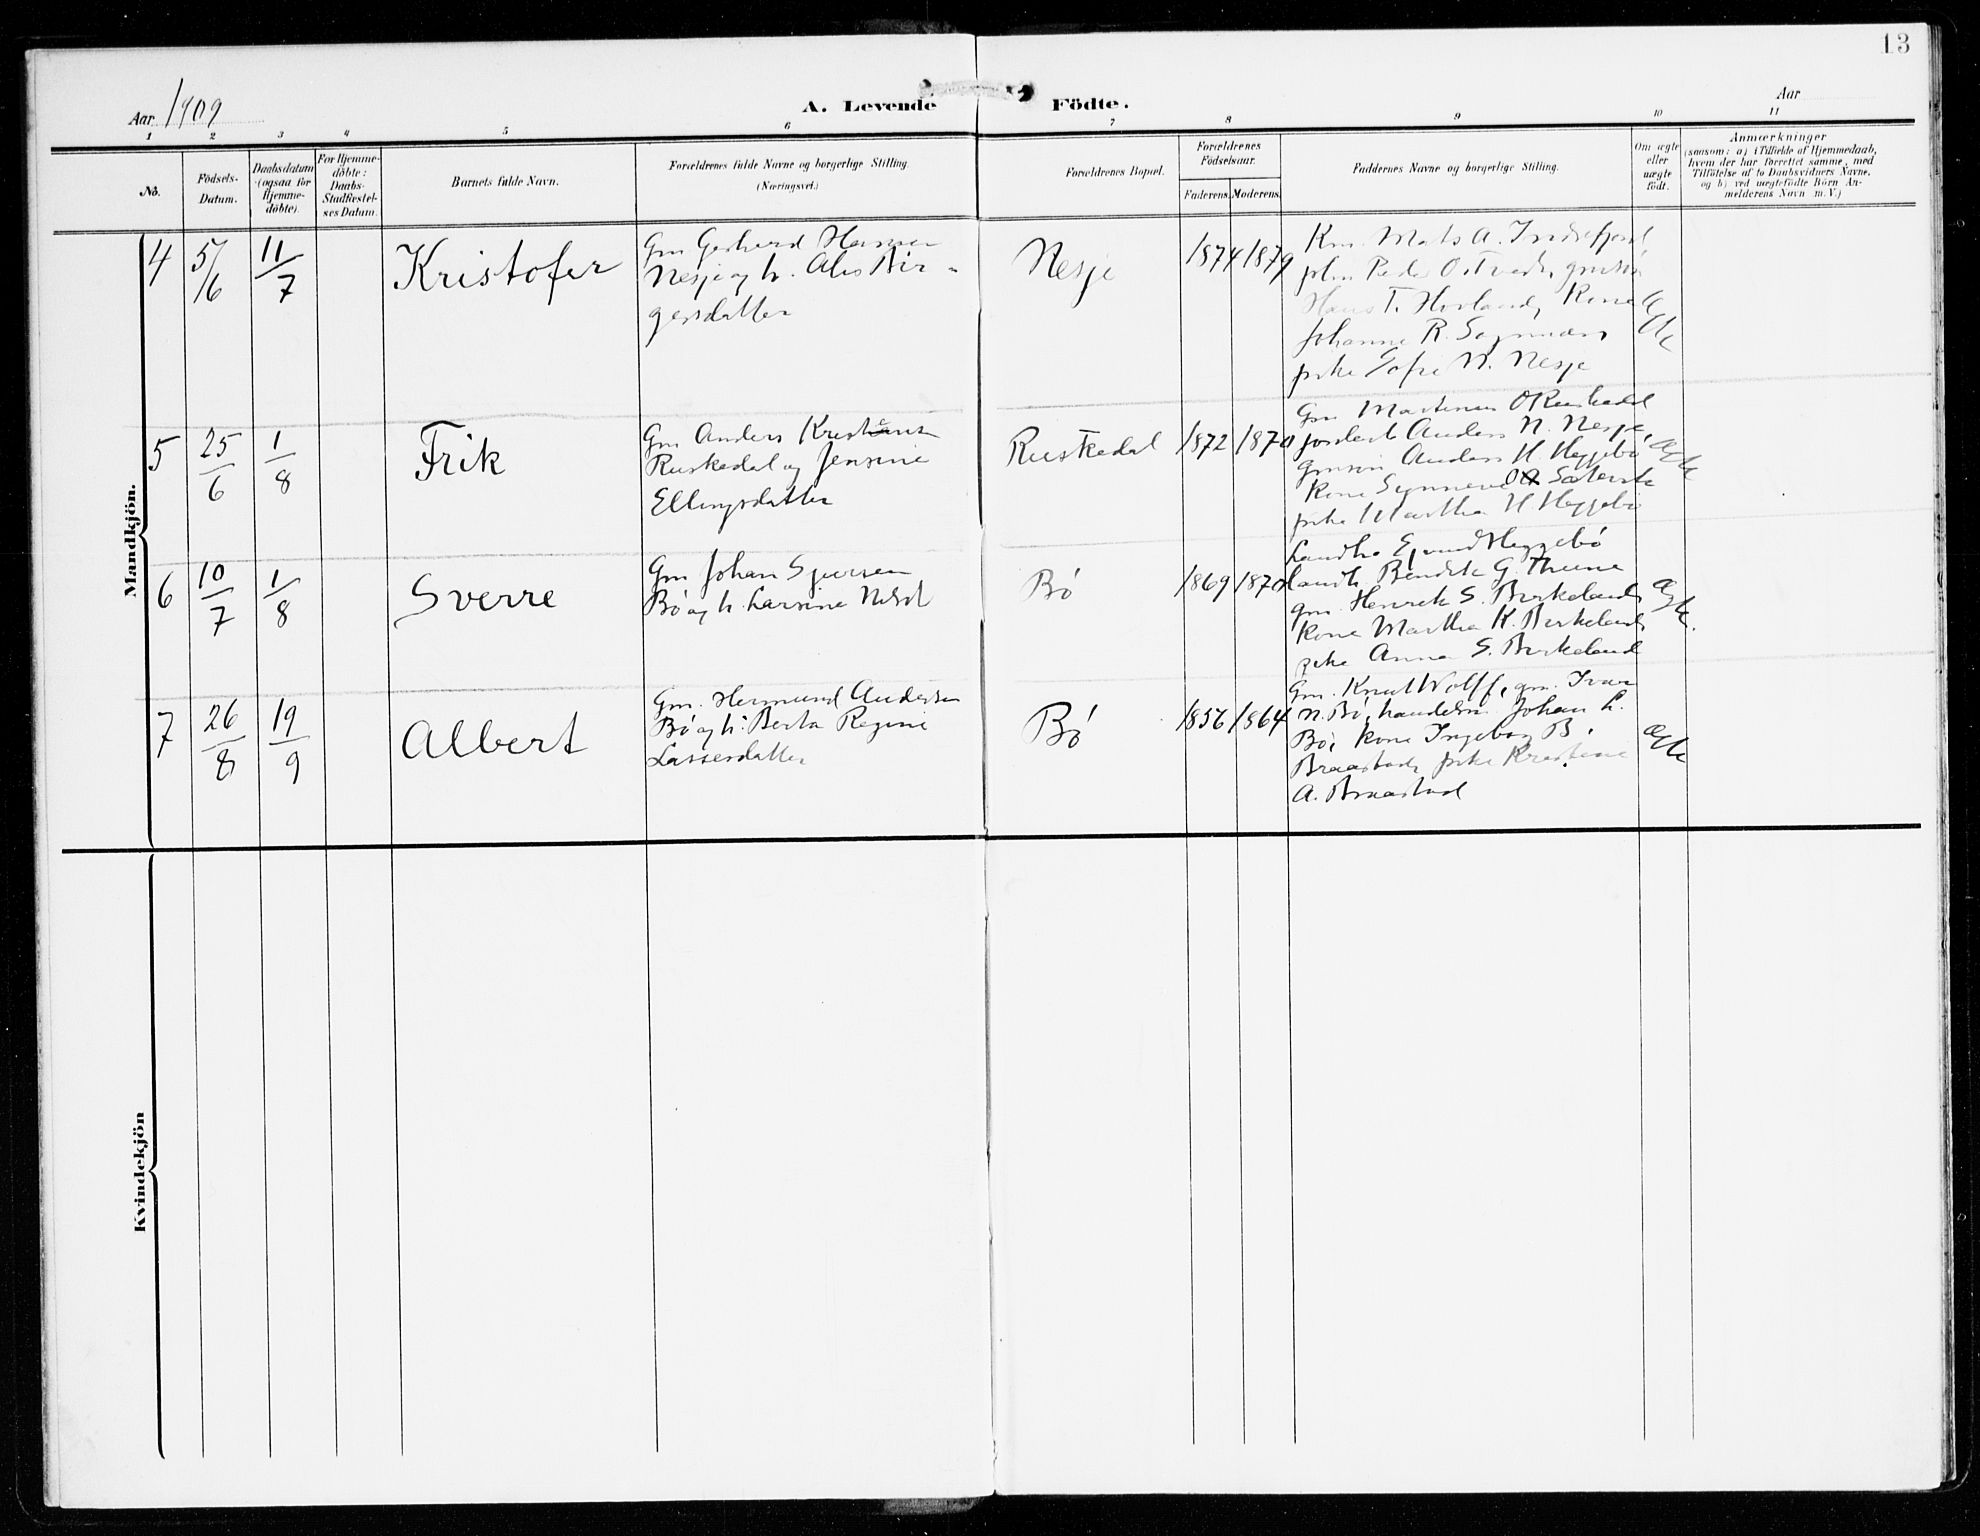 13
Aar 1909
A. Levende Födte.
Aar
1 2 3 4 5 6 7 8 9 10 11
No.
Födsels-Datum.
Daabsdatum (ogsaa for Hjemme-döbte).
For Hjemme-döbte: Daabs-Stadfæstel-ses Datum.
Barnets fulde Navn.
Forældrenes fulde Navne og borgerlige Stilling.
(Næringsvei.)
Forældrenes Bopæl.
Forældrenes Födselsaar.
Faderens. Moderens.
Faddernes Navne og borgerlige Stilling.
Om ægte eller uægte födt.
Anmærkninger
(saasom: a) i Tilfælde af Hjemmedaab,
hvem der har forrettet samme, med
Tilföielse af to Daabsvidners Navne,
og b) ved uægtefödte Börn An-
melderens Navn m. V.)
Mandkjön.
4 5/6 11/7 Kristofer
Gm Gerhard Hansen
Nesje og h. Alis Bir-
gersdatter
Nesje
1874 1879
Km. Mats A. Indrefjord
Peder gmsøn
Hans T. Hovland, Kone
Johanne R.
pike Sofie N. Nesje
ægte
5 25/6 1/8 Frik
Gm Anders Kristians
Ruskedal og Jensine
Ellingsdatter
Ruskedal
1872 1870
Gm Martinus O Ruskedal
Anders N. Nesje,
gmsøn Anders H. Heggebø
Kone Synneve
pike Martha H Heggebø
ægte
6 10/7 1/8 Sverre
Gm Johan Sjursen
Bø og h. Larsine Nilsd
Bø
1869 1870
Landh. Ejvind Heggebø
landh. Bendik G. Thune
gm. Henrik S. Birkeland,
Kone Martha K. Birkeland
pike Anna S. Birkeland
ægte.
7 26/8 19/9 Albert
Gm. Hermund Andersen
Bø og h. Berta Regine
Lassesdatter
Bø
1856 1864
Gm. Knut Wolff, gm. Ivar
N. Bø, handelsm. Johan L.
Bø, kone Ingeborg B.
Braastad, pike Kristine
A. Braastad
ægte
Kvindekjön